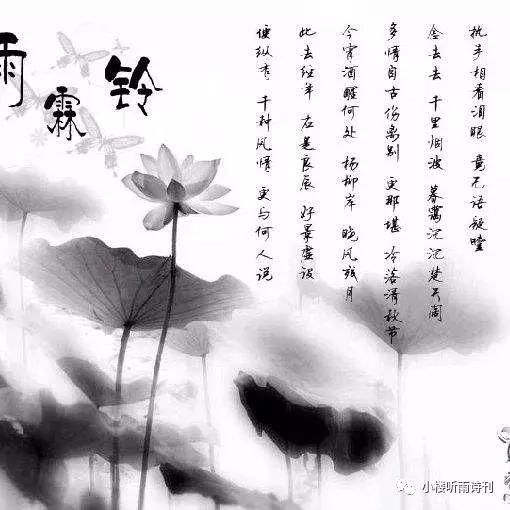 雨霖铃
执手相看泪眼 竟无语凝噎
念去去 千里烟波 暮霭沉沉楚天阔
多情自古伤离别 更那堪 冷落清秋节
今宵酒醒何处 杨柳岸 晓风残月
此去经年 应是良辰 好景虚设
便纵有 千种风情 更与何人说
小楼听雨诗刊